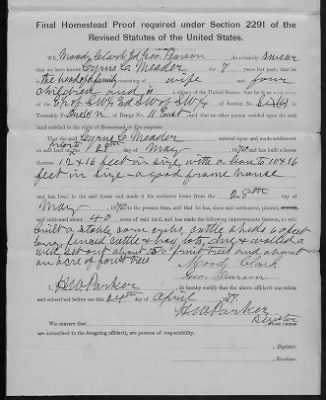 Final Homestead Proof required under Section 2291 of the
Revised Statutes of the United States.
WE, Moody Clark and Geo. Pearson do solemnly swear
that we have known Cyrus C. Meader for 7 years last past; that he
is the head of a family consisting of wife and four
children and is a citizen of the United States; that he is
the of SW¼ and SW of SW¼ of Section No.
in Township No. of Range No. 11 East and that no other person resided upon the said
land entitled to the right of Homestead or Pre-emption.
That the said Cyrus C. Meader entered upon and made settlement
on said land on the prior to 28th day of May, 1870 and has built a house
thereon 12 x 16 feet in size with a 10 x 16
feet in size - a good frame house
and has lived in the said house and made it his exclusive home from the 28th
day of May, 1870 to the present time, and that he has, since said settlement, plowed,
and cultivated about 40 acres of said land, and has made the following improvements thereon, to wit:
built a stable, cattle sheds 60 feet
long fenced cattle & hay lots, dug & walled a
well set out about 150 fruit trees and about
an acre of forest trees
Moody Clark
Geo. Pearson
I, H W Parker do hereby certify that the above affidavit was taken
and subscribed before me this 24th day of April 1877.
H W Parker
Register
WE CERTIFY that whose names
are subscribed to the foregoing affidavit, are persons of respectability.
, Register.
, Receiver.